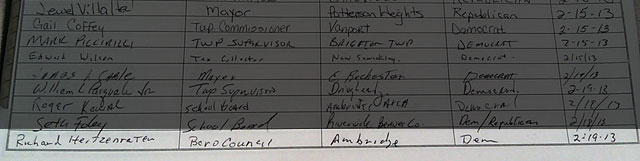 Jewel Villalta Mayor Patterson Heights Republican 2-15-13
Gail Coffey Twp Commissioner Vanport Democrat 2-15-13
MARK PICCIRILLI TWP SUPERVISOR BRIGHTON TWP DEMOCRAT 2-15-13
Edward Wilson Tax Collector New Democrat 2/15/13
James Mayor E. Rochester Democrat 2/19/13
William Jr Twp Supervisor Democrat 2-19-13
Roger School board Ambridge Area Democrat 2/19/13
Seth Foley School Board Riverside Beaver Co. Dem/Republican 2/19/13
Richard Hertzenraten Boro Council Ambridge Dem 2-19-13